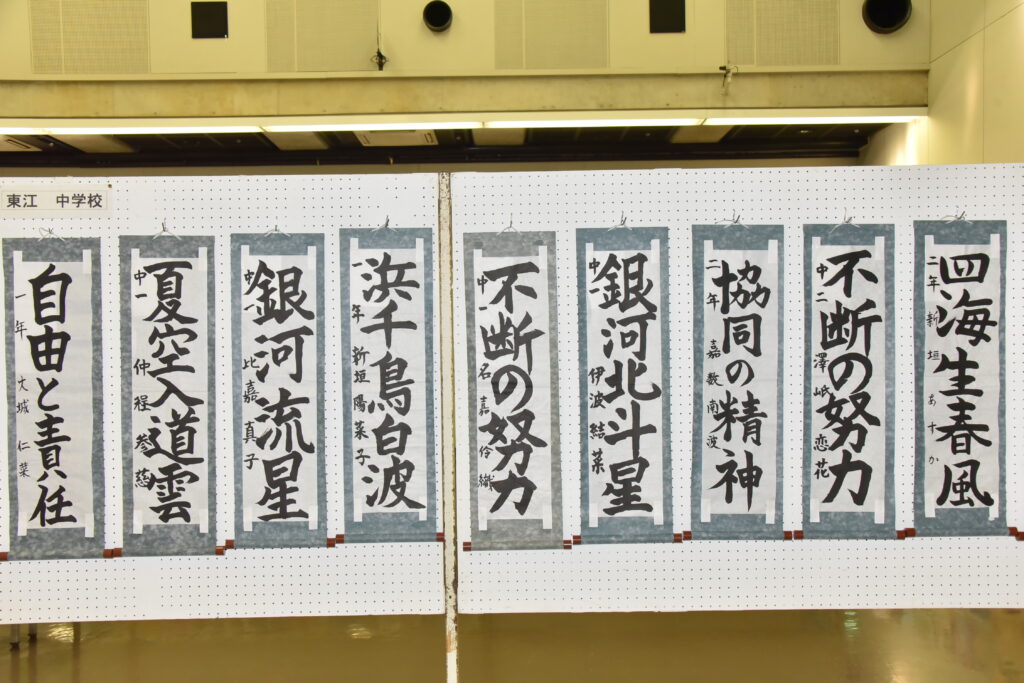 東江 中学校
四海生春風
二年 新垣あすか
不断の努力
中二 澤岻恋花
協同の精神
二年 嘉数南波
銀河北斗星
中一 伊波結菜
不断の努力
中一 名嘉伶織
浜千鳥白波
一年 新垣陽菜子
銀河流星
中一 比嘉真子
夏空入道雲
中一 仲程
自由と責任
一年 大城仁菜